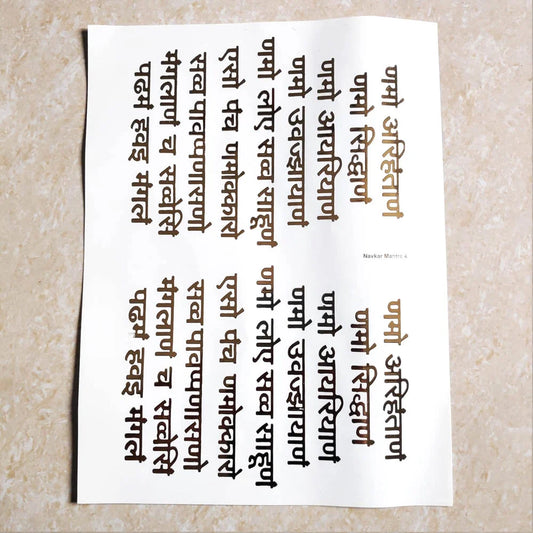 णमो अरिहंताणं
णमो सिद्धाणं
णमो आयरियाणं
णमो उवज्झायाणं
णमो लोए सव्व साहूणं
एसो पंच णमोक्कारो
सव्व पावप्पणासणो
मंगलाणं च सव्वेसिं
पढमं हवइ मंगलं
Navkar Mantra 4
णमो अरिहंताणं
णमो सिद्धाणं
णमो आयरियाणं
णमो उवज्झायाणं
णमो लोए सव्व साहूणं
एसो पंच णमोक्कारो
सव्व पावप्पणासणो
मंगलाणं च सव्वेसिं
पढमं हवइ मंगलं